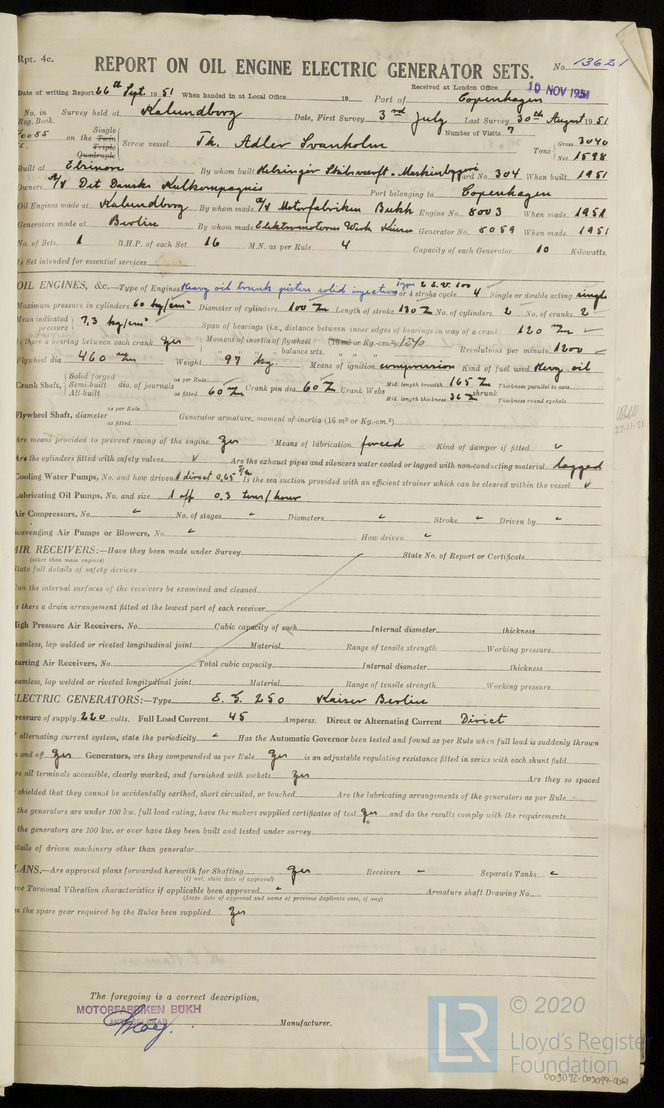 Rpt. 4c.
REPORT ON OIL ENGINE ELECTRIC GENERATOR SETS.
No. 13621
Received at London Office 10 NOV 1951
Date of writing Report 26th Sept. 1951 When handed in at Local Office 19 Port of Copenhagen
No. in Reg. Book. Survey held at Kalundborg Date, First Survey 3rd July Last Survey 30th August 1951
Number of Visits 7
on the Single Twin Triple Quadruple Screw vessel Th. Adler Svanholm Tons Gross 3040 Net 1598
Built at Elsinore By whom built Helsingör Skibsværft & Maskinbyggeri Yard No. 304 When built 1951
Owners A/S Det Danske Kulkompagnie Port belonging to Copenhagen
Oil Engines made at Kalundborg By whom made A/S Motorfabriken Bukh Engine No. 8003 When made 1951
Generators made at Berlin By whom made Elektromotoren Werk Kaiser Generator No. 8059 When made 1951
No. of Sets 1 B.H.P. of each Set 16 M.N. as per Rule 4 Capacity of each Generator 10 Kilowatts.
Is Set intended for essential services
OIL ENGINES, &c.—Type of Engines Heavy oil trunk piston solid injection 2 or 4 stroke cycle 4 Single or double acting single
Maximum pressure in cylinders 60 kg/cm² Diameter of cylinders 100 m/m Length of stroke 130 m/m No. of cylinders 2 No. of cranks 2
Mean indicated pressure 7,3 kg/cm² Span of bearings (i.e., distance between inner edges of bearings in way of a crank) 120 m/m
Is there a bearing between each crank Yes Moment of inertia of flywheel (16 m² or Kg.-cm.²) 1270 Revolutions per minute 1200
" " " balance wts. " "
Flywheel dia 460 m/m Weight 97 kg. Means of ignition compression Kind of fuel used Heavy oil
Crank Shaft, Solid forged Semi-built All-built dia. of journals as per Rule as fitted 60 m/m Crank pin dia 60 m/m Crank Webs Mid. length breadth 165 m/m Thickness parallel to axis
Mid. length thickness 36 m/m shrunk Thickness round eyehole
Flywheel Shaft, diameter as per Rule as fitted Generator armature, moment of inertia (16 m² or Kg.-cm.²)
Are means provided to prevent racing of the engine Yes Means of lubrication forced Kind of damper if fitted
Are the cylinders fitted with safety valves Are the exhaust pipes and silencers water cooled or lagged with non-conducting material lagged
Cooling Water Pumps, No. and how driven 1 direct 0,65 Is the sea suction provided with an efficient strainer which can be cleared within the vessel
Lubricating Oil Pumps, No. and size 1 off 0.3 tons/hour
Air Compressors, No. No. of stages Diameters Stroke Driven by
Scavenging Air Pumps or Blowers, No. How driven
AIR RECEIVERS:—Have they been made under Survey State No. of Report or Certificate
(other than main engines)
State full details of safety devices
Can the internal surfaces of the receivers be examined and cleaned
Is there a drain arrangement fitted at the lowest part of each receiver
High Pressure Air Receivers, No. Cubic capacity of each Internal diameter thickness
Seamless, lap welded or riveted longitudinal joint Material Range of tensile strength Working pressure
Starting Air Receivers, No. Total cubic capacity Internal diameter thickness
Seamless, lap welded or riveted longitudinal joint Material Range of tensile strength Working pressure
ELECTRIC GENERATORS:—Type E. G. 250 Kaiser Berlin
Pressure of supply 220 volts. Full Load Current 45 Amperes. Direct or Alternating Current Direct
alternating current system, state the periodicity Has the Automatic Governor been tested and found as per Rule when full load is suddenly thrown
and off Yes Generators, are they compounded as per Rule Yes is an adjustable regulating resistance fitted in series with each shunt field
re all terminals accessible, clearly marked, and furnished with sockets Yes Are they so spaced
shielded that they cannot be accidentally earthed, short circuited, or touched Are the lubricating arrangements of the generators as per Rule
the generators are under 100 kw. full load rating, have the makers supplied certificates of test Yes and do the results comply with the requirements
the generators are 100 kw. or over have they been built and tested under survey
etails of driven machinery other than generator
LANS.—Are approved plans forwarded herewith for Shafting Yes Receivers Separate Tanks
(If not, state date of approval)
ve Torsional Vibration characteristics if applicable been approved Armature shaft Drawing No.
(State date of approval and name of previous duplicate case, if any)
as the spare gear required by the Rules been supplied Yes
The foregoing is a correct description,
MOTORFABRIKEN BUKH
Manufacturer.
© 2020
LR
Lloyd's Register
Foundation
003092-003099-0061